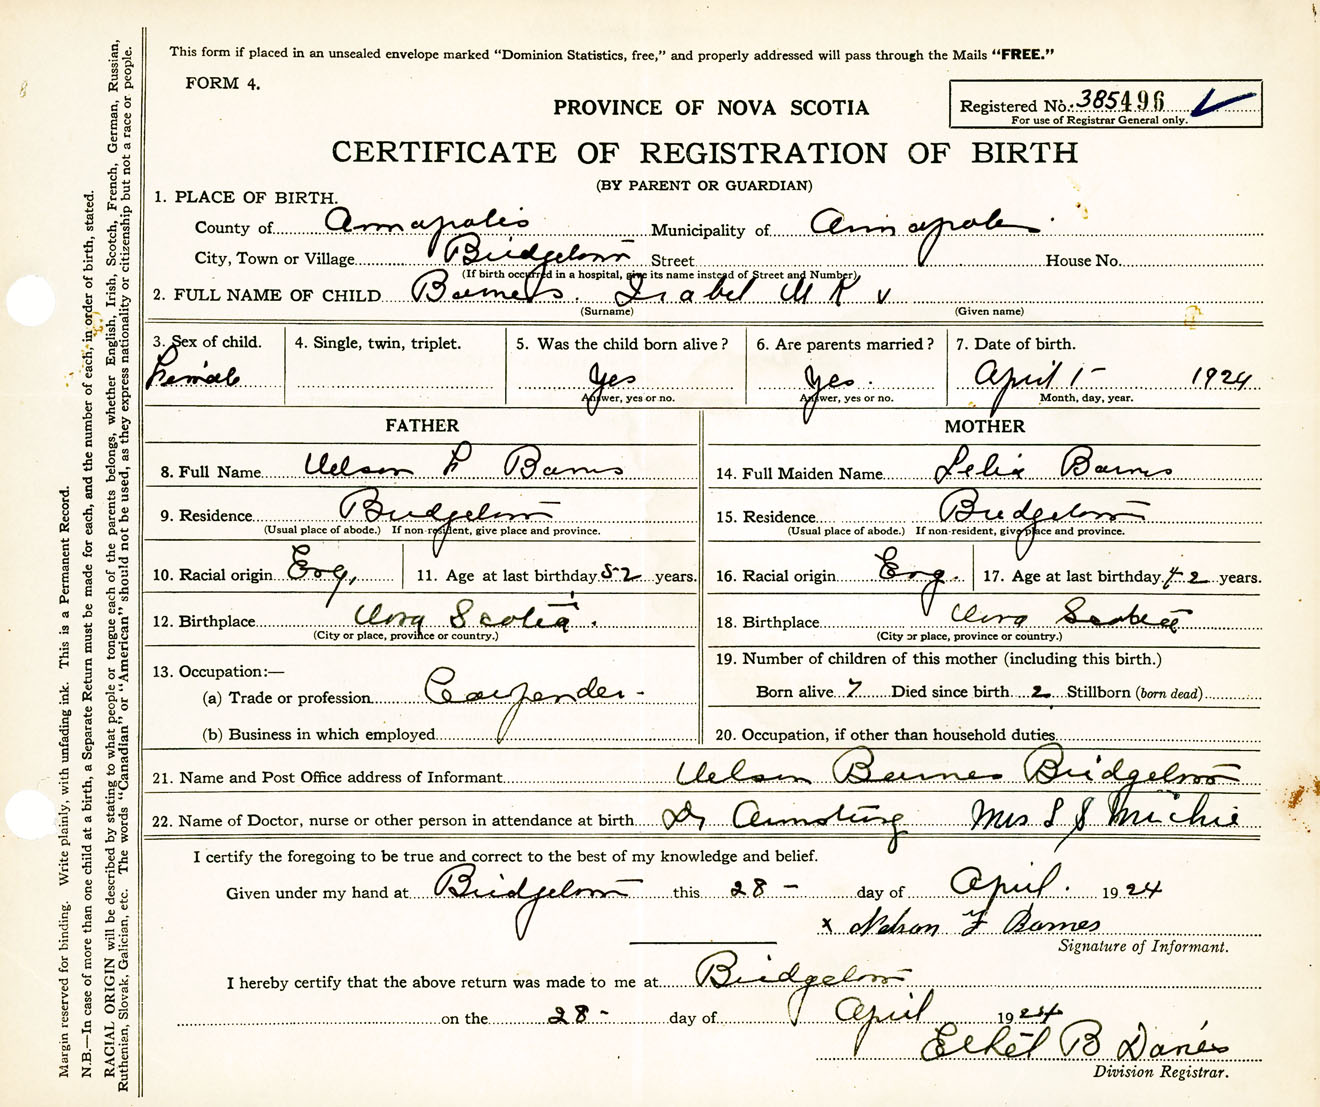 This form if placed in an unsealed envelope marked "Dominion Statistics, free," and properly addressed will pass through the Mails "FREE."
FORM 4.
Registered No. 385496
For use of Registrar General only.
PROVINCE OF NOVA SCOTIA
CERTIFICATE OF REGISTRATION OF BIRTH
(BY PARENT OR GUARDIAN)
1. PLACE OF BIRTH.
County of Annapolis Municipality of Annapolis
City, Town or Village Bridgetown Street House No.
(If birth occurred in a hospital, give its name instead of Street and Number)
2. FULL NAME OF CHILD Barnes. Isabel M K
(Surname) (Given name)
3. Sex of child. 4. Single, twin, triplet. 5. Was the child born alive? 6. Are parents married? 7. Date of birth.
Female Yes Yes. April 1- 1924
Answer, yes or no. Answer, yes or no. Month, day, year.
FATHER
8. Full Name Nelson F Barns
9. Residence Bridgetown
(Usual place of abode.) If non-resident, give place and province.
10. Racial origin Eng. 11. Age at last birthday 52 years.
12. Birthplace Nova Scotia.
(City or place, province or country.)
13. Occupation:—
(a) Trade or profession Carpender-
(b) Business in which employed
MOTHER
14. Full Maiden Name Lelia Barns
15. Residence Bridgetown
(Usual place of abode.) If non-resident, give place and province.
16. Racial origin Eng. 17. Age at last birthday 42 years.
18. Birthplace Nova Scotia
(City or place, province or country.)
19. Number of children of this mother (including this birth.)
Born alive 7 Died since birth 2 Stillborn (born dead)
20. Occupation, if other than household duties
21. Name and Post Office address of Informant Nelson Barnes Bridgetown
22. Name of Doctor, nurse or other person in attendance at birth Dr Armstrong Mrs S S Michie
I certify the foregoing to be true and correct to the best of my knowledge and belief.
Given under my hand at Bridgetown this 28- day of April. 1924
x Nelson F Barnes
Signature of Informant.
I hereby certify that the above return was made to me at Bridgetown
on the 28- day of April 1924
Ethel B Danies
Division Registrar.
Margin reserved for binding. Write plainly, with unfading ink. This is a Permanent Record.
N.B.—In case of more than one child at a birth, a Separate Return must be made for each, and the number of each, in order of birth, stated.
RACIAL ORIGIN will be described by stating to what people or tongue each of the parents belongs, whether English, Irish, Scotch, French, German, Russian,
Ruthenian, Slovak, Galician, etc. The words "Canadian" or "American" should not be used, as they express nationality or citizenship but not a race or people.